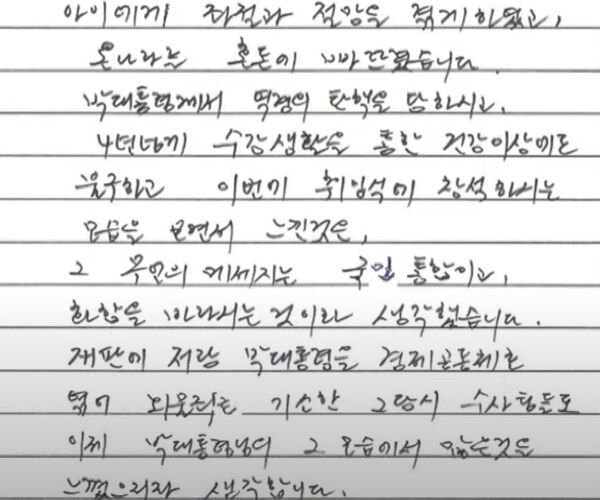 아이에게 좌절과 절망을 겪게하였고,
온나라는 혼돈에 빠뜨렸습니다.
박대통령께서 역경의 탄핵을 당하시고,
4년넘게 수감생활을 통한 건강이상에도
불구하고 이번기 취임석에 참석하시는
모습을 보면서 느낀것은,
그 무언의 메세지는 국민 통합이고,
화합을 바라시는 것이라 생각했습니다.
재판에 저랑 박대통령을 경제공동체로
엮어 뇌물죄로 기소한 그당시 수사팀들도
이제 박대통령님의 그 모습에서 않은것을
느꼈으리라 생각합니다.